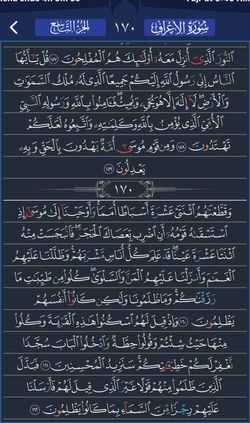 سُورَةُ الأَعْرَافِ ١٧٠ الجزء التاسع
النُّورَ الَّذِي أُنزِلَ مَعَهُ أُوْلَٰئِكَ هُمُ الْمُفْلِحُونَ ١٥٧ قُلْ يَٰأَيُّهَا
النَّاسُ إِنِّي رَسُولُ اللَّهِ إِلَيْكُمْ جَمِيعًا الَّذِي لَهُ مُلْكُ السَّمَٰوَٰتِ
وَالْأَرْضِ لَا إِلَٰهَ إِلَّا هُوَ يُحْيِ وَيُمِيتُ فَـَٔامِنُوا بِاللَّهِ وَرَسُولِهِ النَّبِيِّ
الْأُمِّيِّ الَّذِي يُؤْمِنُ بِاللَّهِ وَكَلِمَٰتِهِ وَاتَّبِعُوهُ لَعَلَّكُمْ
تَهْتَدُونَ ١٥٨ وَمِن قَوْمِ مُوسَىٰ أُمَّةٌ يَهْدُونَ بِالْحَقِّ وَبِهِ
يَعْدِلُونَ ١٥٩
١٧٠
وَقَطَّعْنَٰهُمُ اثْنَتَيْ عَشْرَةَ أَسْبَاطًا أُمَمًا وَأَوْحَيْنَا إِلَىٰ مُوسَىٰ إِذِ
اسْتَسْقَىٰهُ قَوْمُهُ أَنِ اضْرِب بِّعَصَاكَ الْحَجَرَ فَانبَجَسَتْ مِنْهُ
اثْنَتَا عَشْرَةَ عَيْنًا قَدْ عَلِمَ كُلُّ أُنَاسٍ مَّشْرَبَهُمْ وَظَلَّلْنَا عَلَيْهِمُ
الْغَمَٰمَ وَأَنزَلْنَا عَلَيْهِمُ الْمَنَّ وَالسَّلْوَىٰ كُلُوا مِن طَيِّبَٰتِ مَا
رَزَقْنَٰكُمْ وَمَا ظَلَمُونَا وَلَٰكِن كَانُوا أَنفُسَهُمْ
يَظْلِمُونَ ١٦٠ وَإِذْ قِيلَ لَهُمُ اسْكُنُوا هَٰذِهِ الْقَرْيَةَ وَكُلُوا
مِنْهَا حَيْثُ شِئْتُمْ وَقُولُوا حِطَّةٌ وَادْخُلُوا الْبَابَ سُجَّدًا
نَّغْفِرْ لَكُمْ خَطِيـَٰٔتِكُمْ سَنَزِيدُ الْمُحْسِنِينَ ١٦١ فَبَدَّلَ
الَّذِينَ ظَلَمُوا مِنْهُمْ قَوْلًا غَيْرَ الَّذِي قِيلَ لَهُمْ فَأَرْسَلْنَا
عَلَيْهِمْ رِجْزًا مِّنَ السَّمَاءِ بِمَا كَانُوا يَظْلِمُونَ ١٦٢